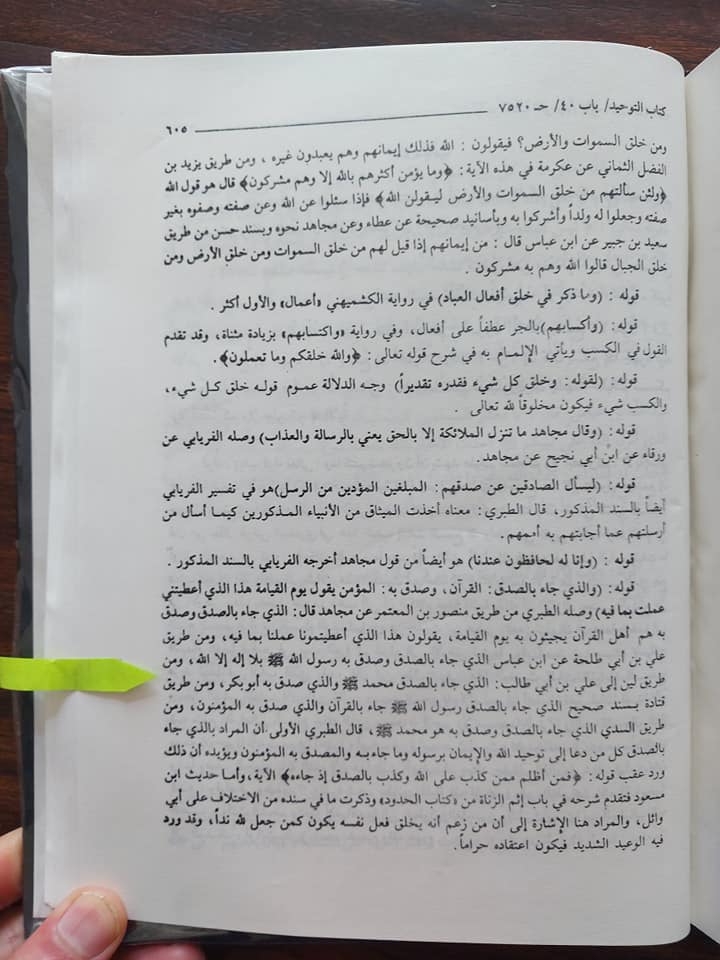 كتاب التوحيد/ باب ٤٠/ حـ ٧٥٢٠
٦٠٥
ومن خلق السموات والأرض؟ فيقولون : الله فذلك إيمانهم وهم يعبدون غيره ، ومن طريق يزيد بن
الفضل الثماني عن عكرمة في هذه الآية: ﴿وما يؤمن أكثرهم بالله إلا وهم مشركون﴾ قال هو قول الله
﴿ولئن سألتهم من خلق السموات والأرض ليقولن الله﴾ فإذا سئلوا عن الله وعن صفته وصفوه بغير
صفته وجعلوا له ولداً وأشركوا به وبأسانيد صحيحة عن عطاء وعن مجاهد نحوه وبسند حسن من طريق
سعيد بن جبير عن ابن عباس قال : من إيمانهم إذا قيل لهم من خلق السموات ومن خلق الأرض ومن
خلق الجبال قالوا الله وهم به مشركون .
قوله : (وما ذكر في خلق أفعال العباد) في رواية الكشميهني «أعمال» والأول أكثر .
قوله : (وأكسابهم)بالجر عطفاً على أفعال، وفي رواية «واكتسابهم» بزيادة مثناة، وقد تقدم
القول في الكسب ويأتي الإلمام به في شرح قوله تعالى: ﴿والله خلقكم وما تعملون﴾.
قوله : (لقوله: وخلق كل شيء فقدره تقديراً) وجه الدلالة عموم قوله خلق كل شيء،
والكسب شيء فيكون مخلوقاً لله تعالى .
قوله : (وقال مجاهد ما تنزل الملائكة إلا بالحق يعني بالرسالة والعذاب) وصله الفريابي عن
ورقاء عن ابن أبي نجيح عن مجاهد.
قوله : (ليسأل الصادقين عن صدقهم: المبلغين المؤدين من الرسل)هو في تفسير الفريابي
أيضاً بالسند المذكور، قال الطبري: معناه أخذت الميثاق من الأنبياء المذكورين كيما أسأل من
أرسلتهم عما أجابتهم به أممهم.
قوله : (وإنا له لحافظون عندنا) هو أيضاً من قول مجاهد أخرجه الفريابي بالسند المذكور .
قوله : (والذي جاء بالصدق: القرآن، وصدق به: المؤمن يقول يوم القيامة هذا الذي أعطيتني
عملت بما فيه) وصله الطبري من طريق منصور بن المعتمر عن مجاهد قال: الذي جاء بالصدق وصدق
به هم أهل القرآن يجيئون به يوم القيامة، يقولون هذا الذي أعطيتمونا عملنا بما فيه، ومن طريق
علي بن أبي طلحة عن ابن عباس الذي جاء بالصدق وصدق به رسول الله ﷺ بلا إله إلا الله، ومن
طريق لين إلى علي بن أبي طالب: الذي جاء بالصدق محمد ﷺ والذي صدق به أبو بكر، ومن طريق
قتادة بسند صحيح الذي جاء بالصدق رسول الله ﷺ جاء بالقرآن والذي صدق به المؤمنون، ومن
طريق السدي الذي جاء بالصدق وصدق به هو محمد ﷺ، قال الطبري الأولى أن المراد بالذي جاء
بالصدق كل من دعا إلى توحيد الله والإيمان برسوله وما جاء به والمصدق به المؤمنون ويؤيده أن ذلك
ورد عقب قوله: ﴿فمن أظلم ممن كذب على الله وكذب بالصدق إذ جاءه﴾ الآية،وأما حديث ابن
مسعود فتقدم شرحه في باب إثم الزناة من «كتاب الحدود» وذكرت ما في سنده من الاختلاف على أبي
وائل، والمراد هنا الإشارة إلى أن من زعم أنه يخلق فعل نفسه يكون كمن جعل لله نداً، وقد ورد
فيه الوعيد الشديد فيكون اعتقاده حراماً.